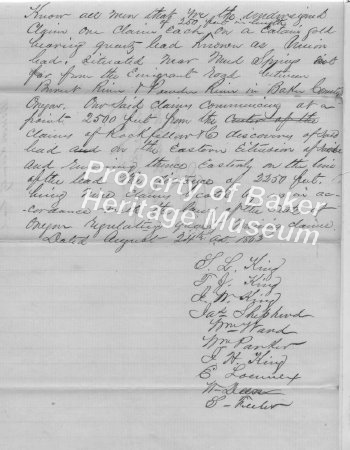 Know all men that We the undersigned
250 feet in length
Claim one Claim Each on a Certain gold
bearing quartz lead Known as Union
lead, situated near Mud Springs not
far from the Emigrant road between
Burnt River & Powder River in Baker County
Oregon. Our said Claims Commencing at a
point 2500 feet from the Center of the
Claims of Rockfellow & Co discovery of said
lead and on the Eastern Extension of
and running thence Easterly on the line
of the lead the distance of 2250 feet.
being nine claims located by us in ac-
cordance with the laws of the State of
Oregon Regulating Quartz claims
Dated August 24th AD, 1863
S. L. King
T. J. King
J. W. King
Jas Shepherd
Wm Ward
Wm Parker
J. H. King
E
W Dean
S
Property of Baker
Heritage Museum